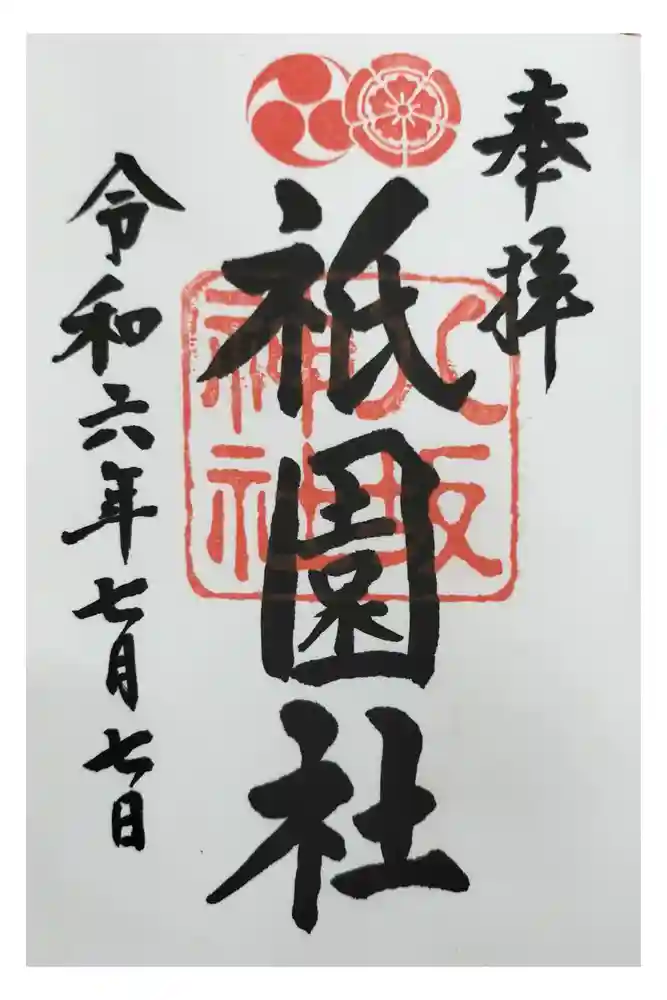 奉拝
祇園社
八坂
神社
令和六年七月七日